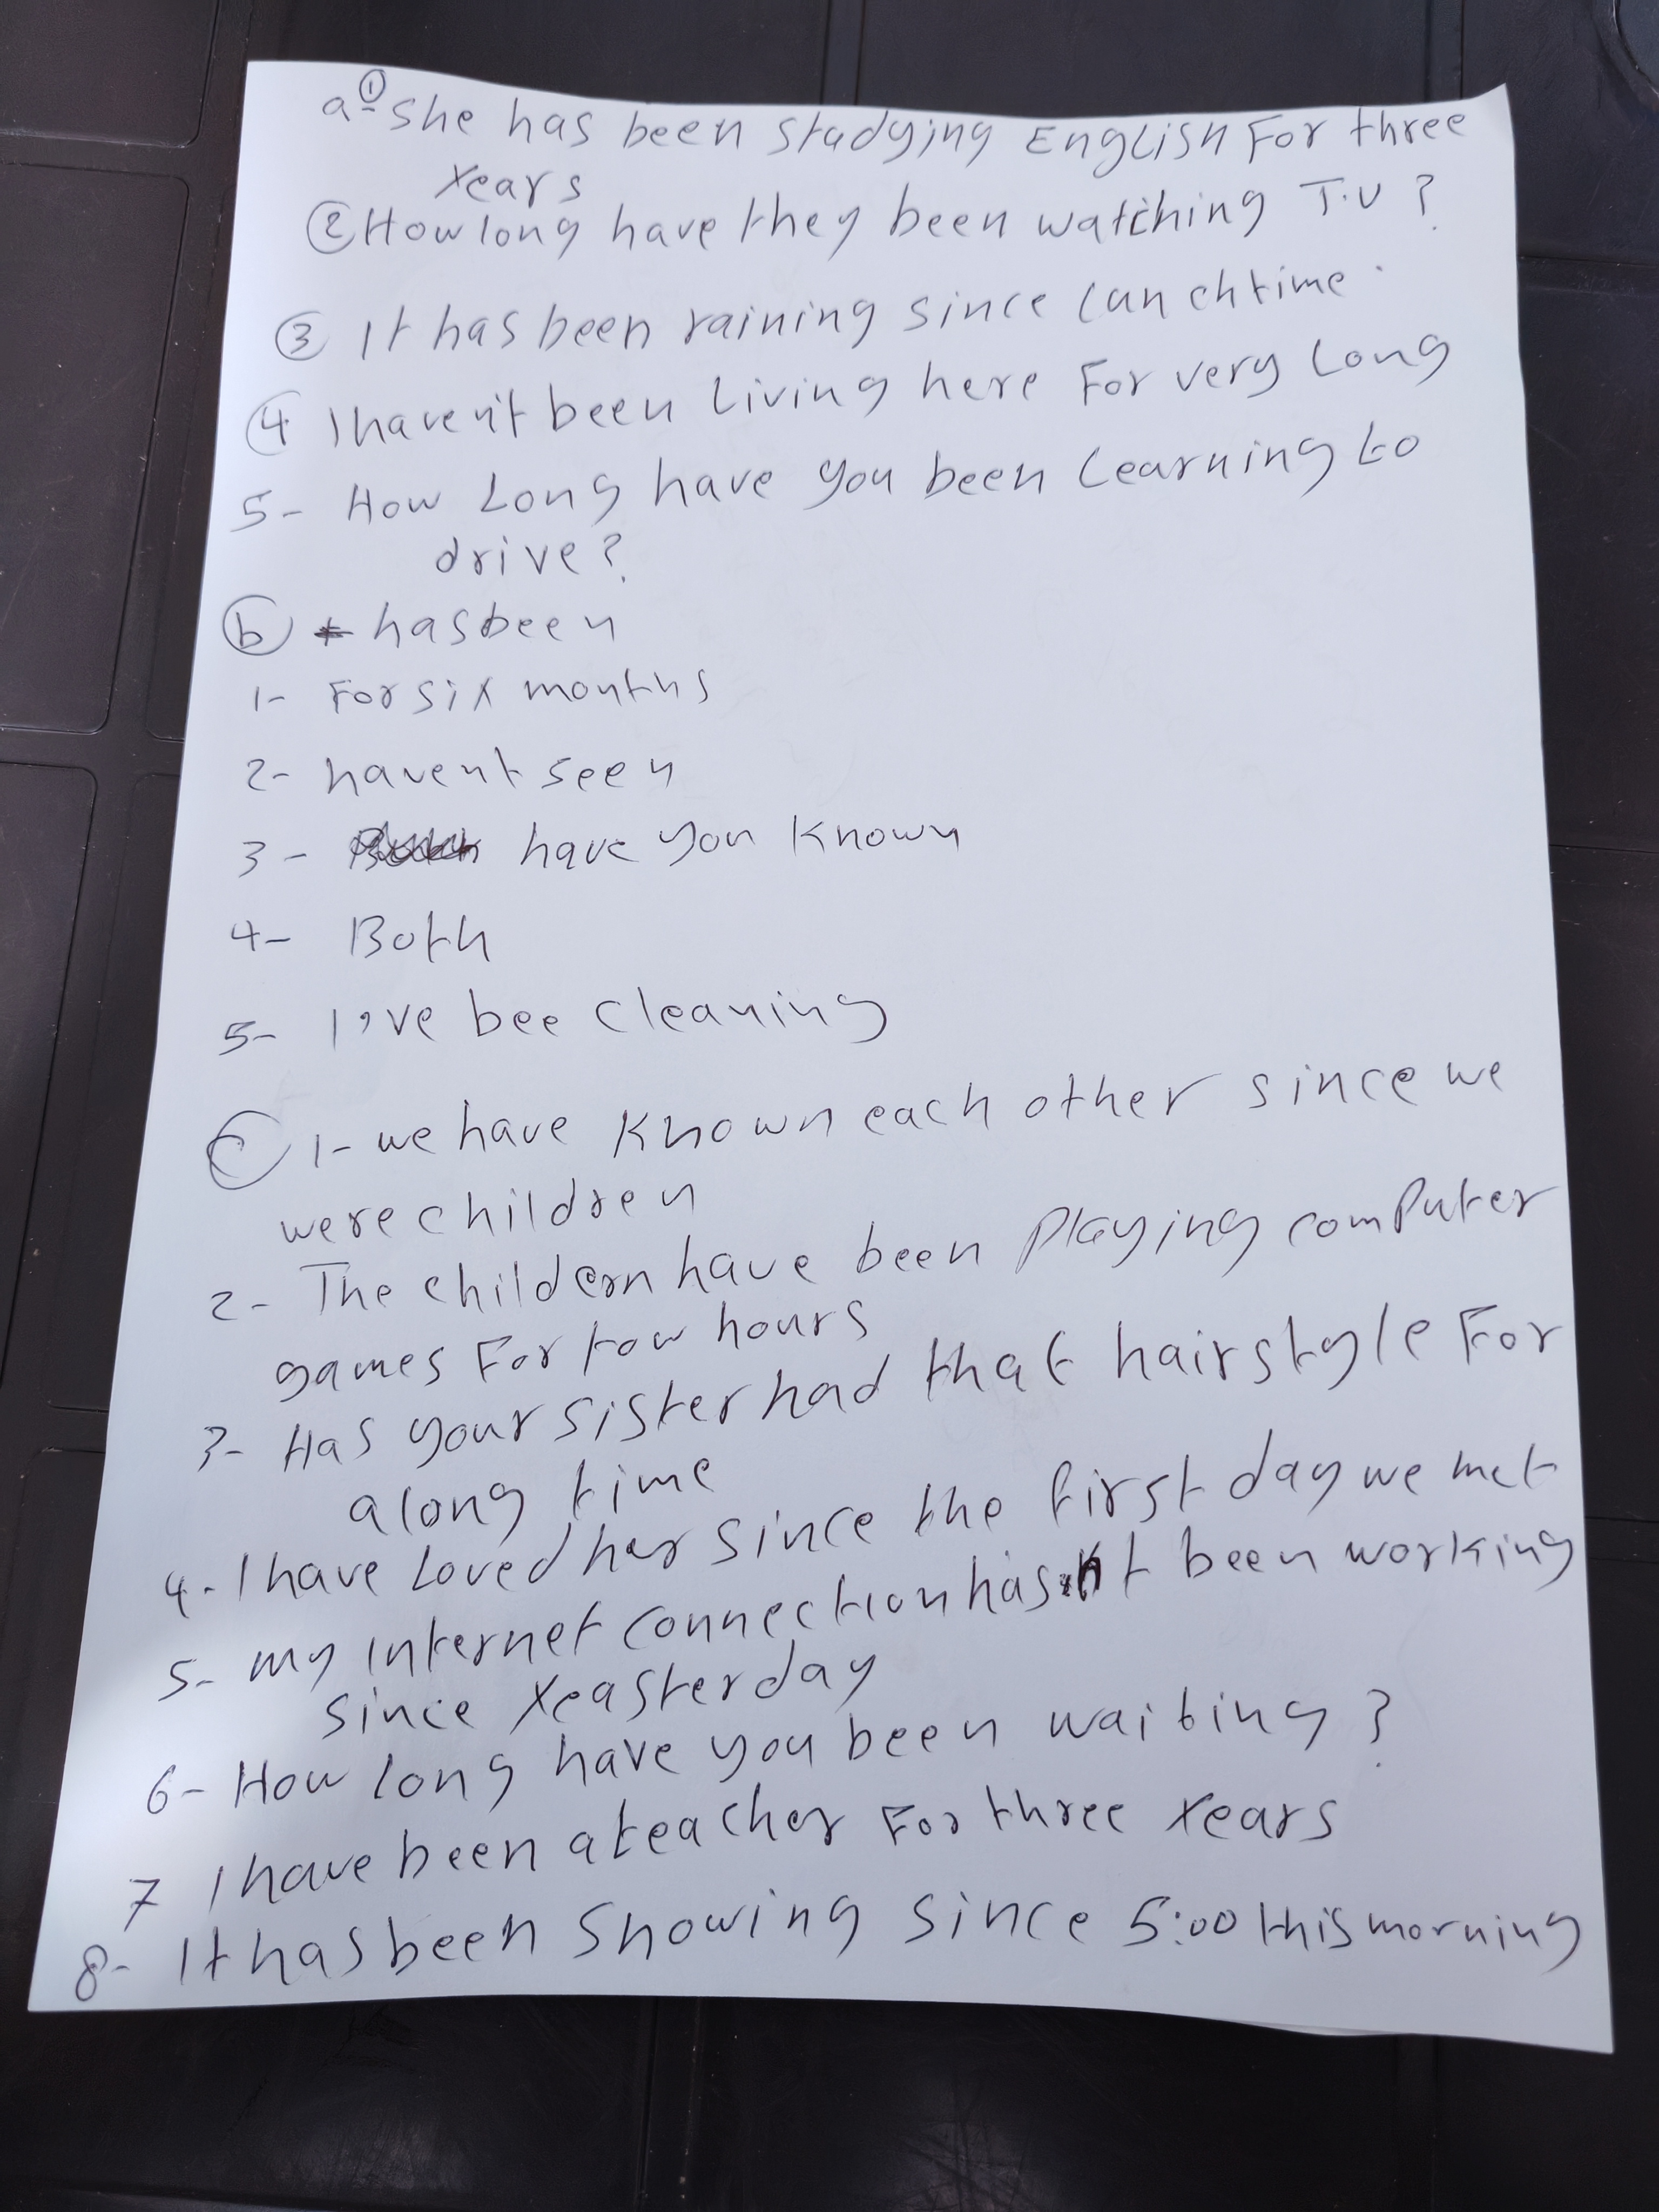 a ① - she has been studying English For three
years
② How long have they been watching T.V ?
③ It has been raining since lunchtime .
④ I haven't been Living here For very Long
5- How Long have you been Learning to
drive ?
ⓑ has been
1- For six months
2- havent seen
3- have you Known
4- Both
5- I've bee cleaning
ⓒ 1- we have Known each other since we
were children
2- The childern have been Playing comPuter
games For tow hours
3- Has your sister had that hairstyle For
a long time
4- I have Loved her since the first day we met
5- my internet connection hasnt been working
since yeasterday
6- How long have you been waiting ?
7 I have been a teacher For three years
8- It has been snowing since 5:00 this morning